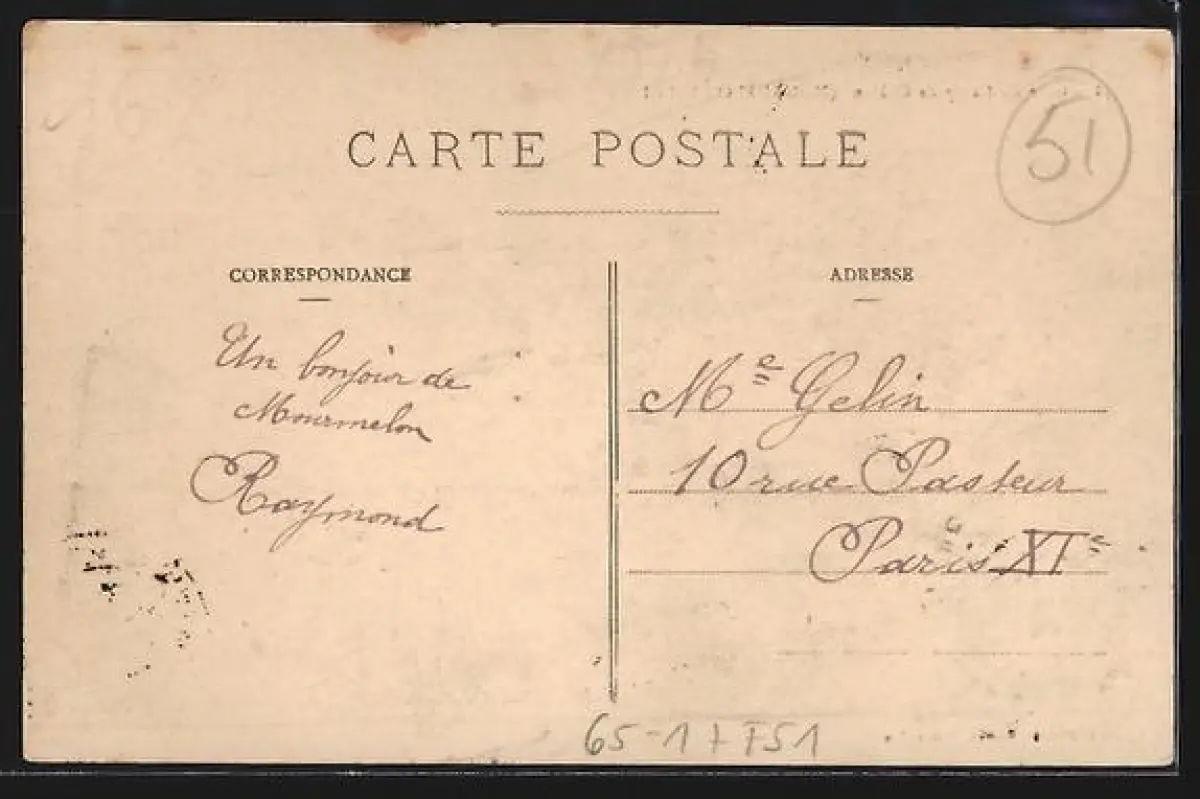 CARTE POSTALE
51
CORRESPONDANCE
ADRESSE
Un bonjour de
Mourmelon
Raymond
Me Gelin
10 rue Pasteur
Paris XIe
65-17 F51